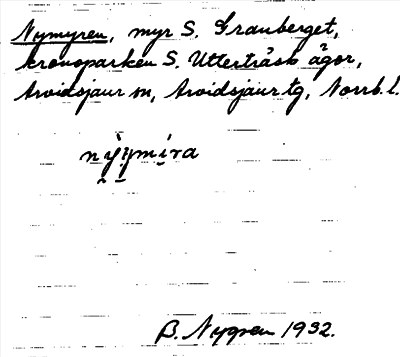 Nymyren, myr S. Granberget,
kronoparken S. Utterträsk ägor,
Arvidsjaur sn, Arvidsjaur tg, Norrb. l.
B. Nygren 1932.